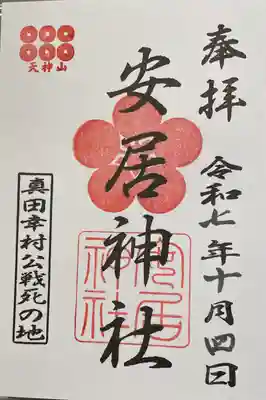 奉拝
令和七年十月四日
安居神社
安居
神社
天神山
真田幸村公戦死の地